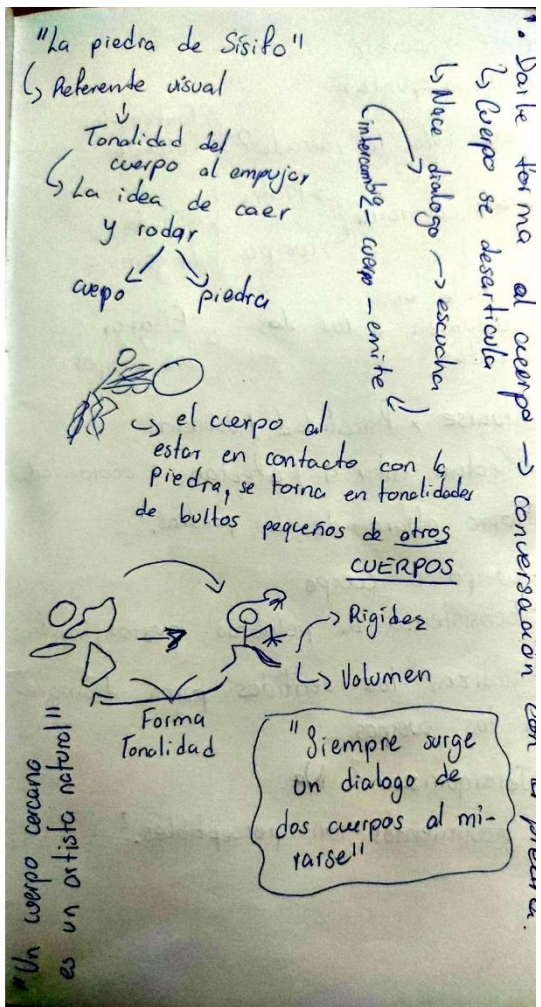 "La piedra de Sísifo"
↳ Referente visual
↓
Tonalidad del
cuerpo al empujar
↳ La idea de caer
y rodar
cuepo
piedra
↳ el cuerpo al
estar en contacto con la
piedra, se torna en tonalidades
de bultos pequeños de otros
CUERPOS
→ Rigides
↳ Volumen
Forma
Tonalidad
"Siempre surge
un dialogo de
dos cuerpos al mi-
rarse"
"Un cuerpo cercano
es un artista natural"
Darle forma al cuerpo → conversación con la piedra.
↳ Cuerpo se desarticula
↳ Nace dialogo → escucha
intercambio - cuerpo - emite